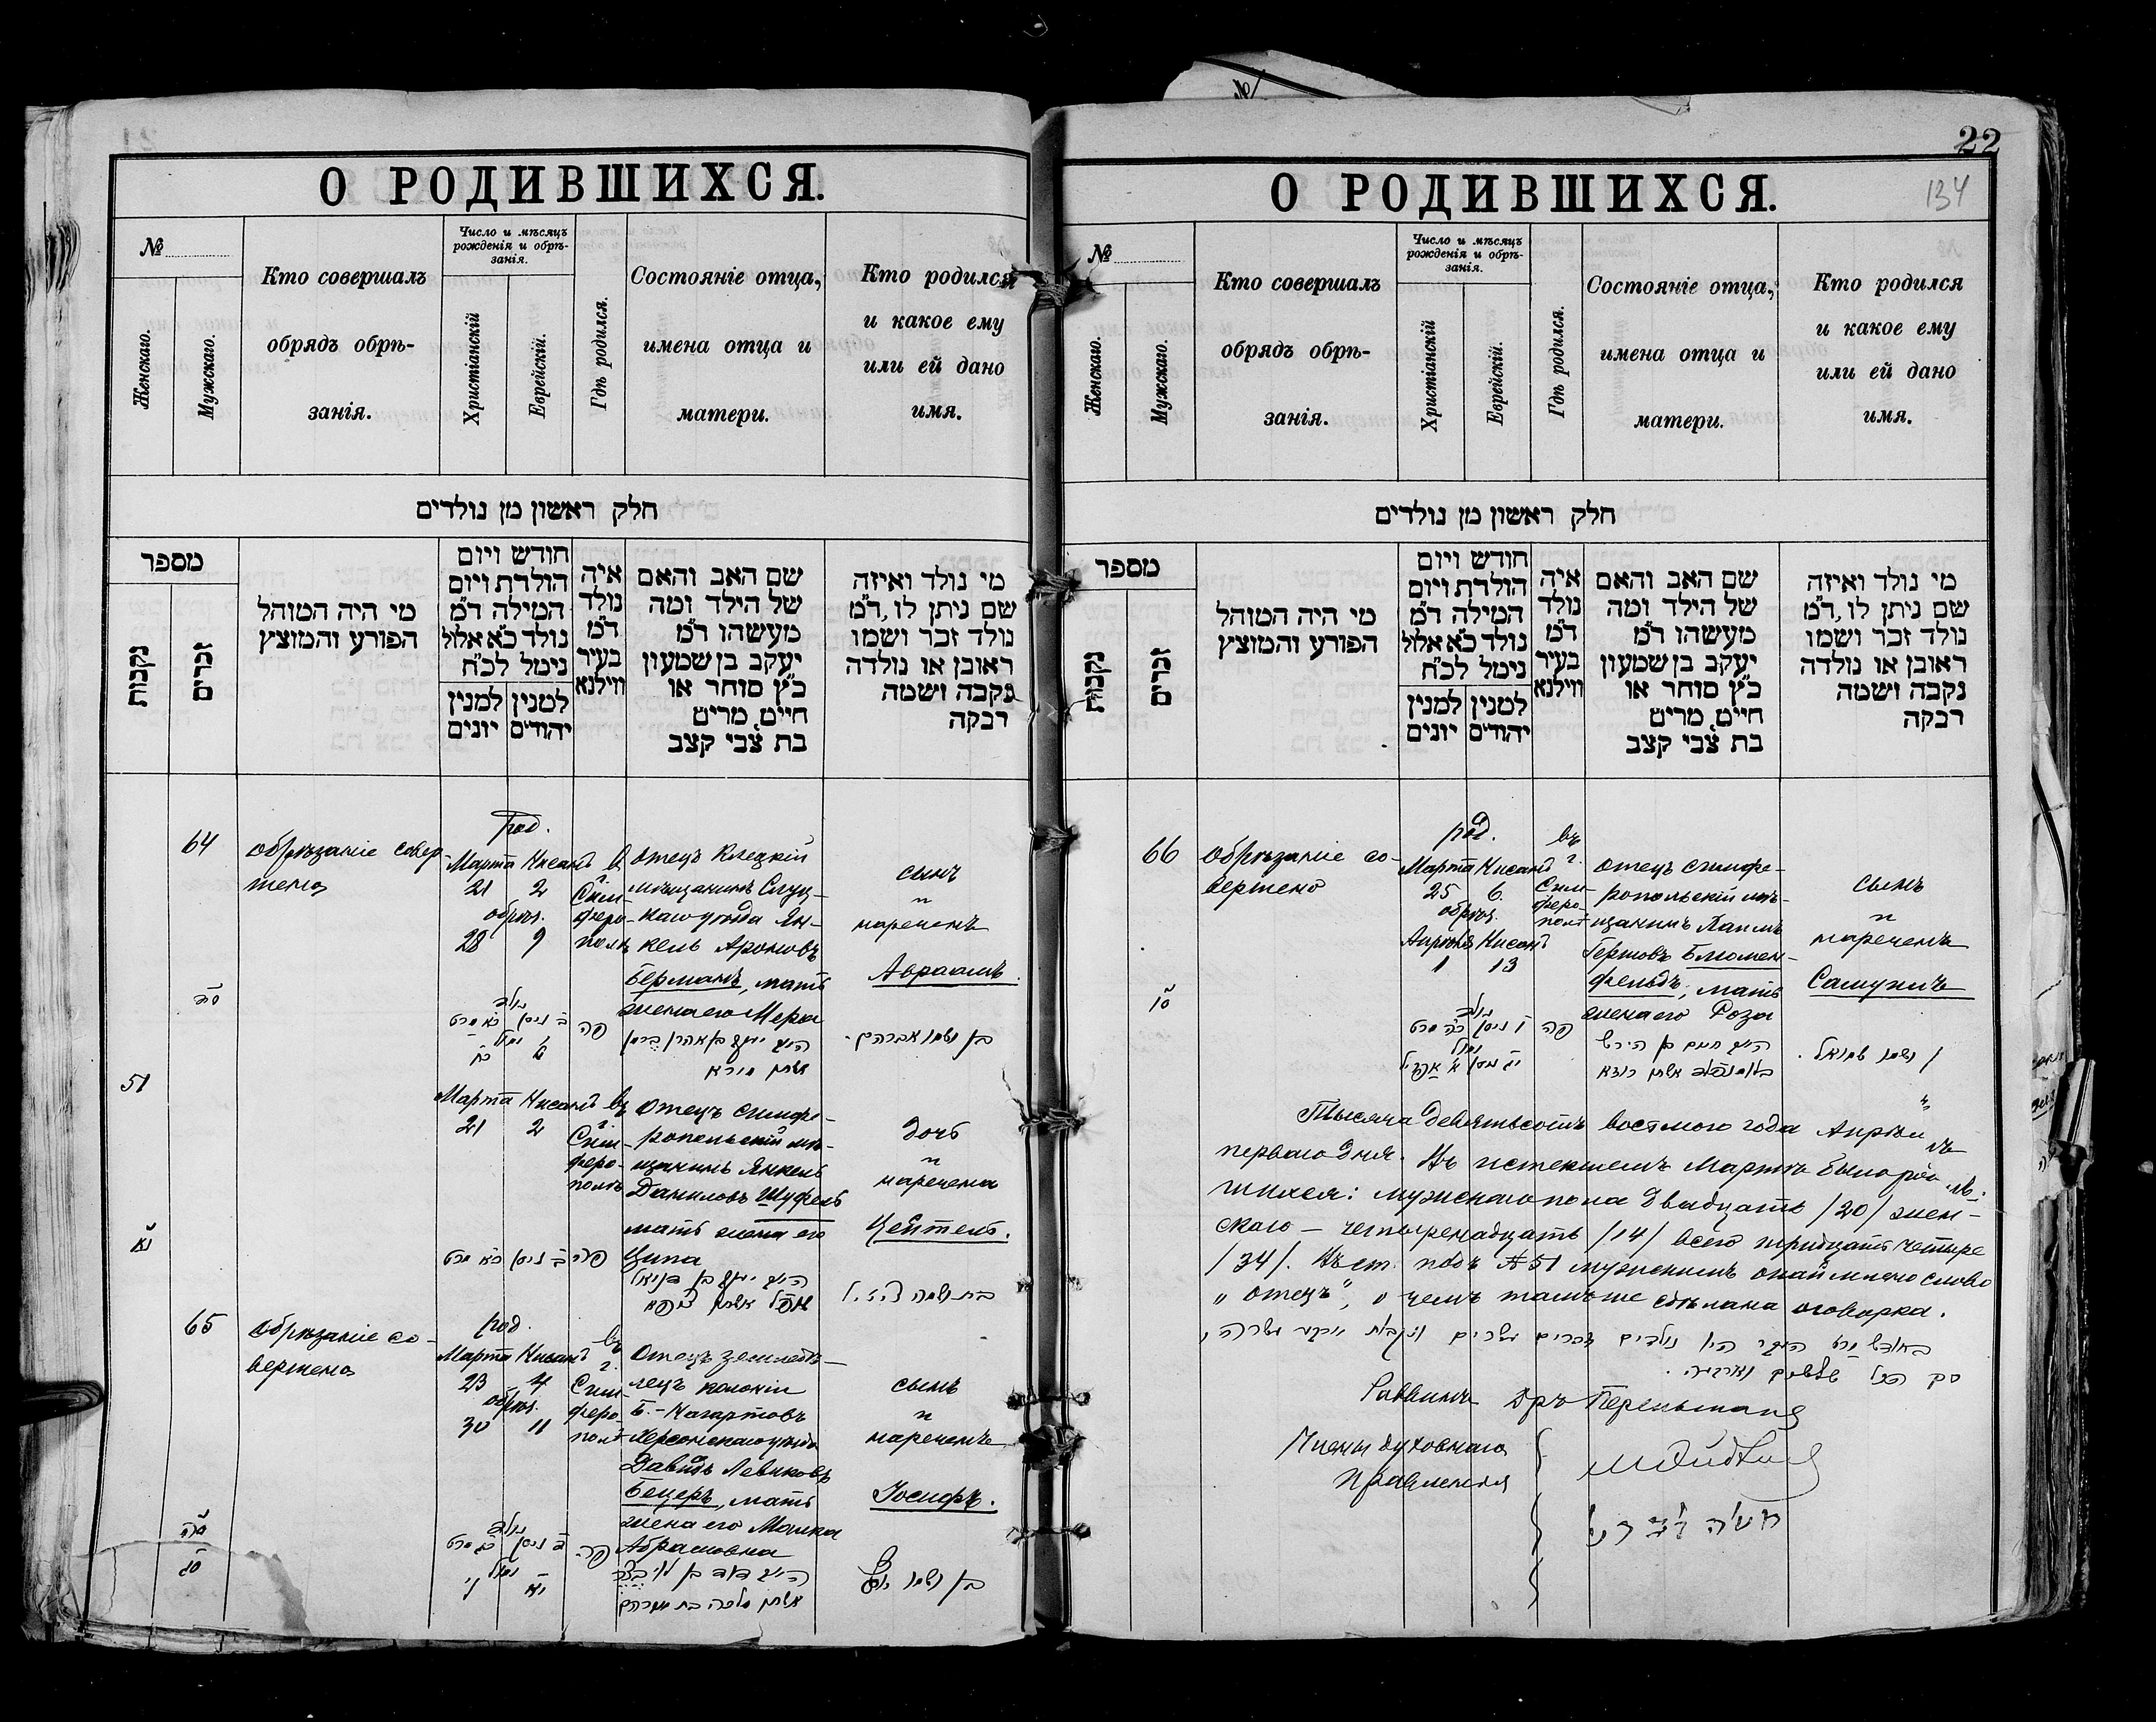 О РОДИВШИХСЯ.
№
Женскаго.
Мужскаго.
Кто совершалъ
обрядъ обрѣ-
занія.
Число и мѣсяцъ
рожденія и обрѣ-
занія.
Христіанскій
Еврейскій.
Гдѣ родился.
Состояніе отца,
имена отца и
матери.
Кто родился
и какое ему
или ей дано
имя.
חלק ראשון מן נולדים
מספר
נקבות
זכרים
מי היה המוהל
הפורע והמוצץ
חודש ויום
הולדת ויום
המילה ד״מ
נולד כ״א אלול
נימל לכ״ח
למנין למנין
יהודים יונים
איה
נולד
ד״מ
בעיר
ווילנא
שם האב והאם
של הילד ומה
מעשהו ד״מ
יעקב בן שמעון
כ״ץ סוחר או
חיים, מרים
בת צבי קצב
מי נולד ואיזה
שם ניתן לו, ד״מ
נולד זכר ושמו
ראובן או נולדה
נקבה ושמה
רבקה
64
обрѣзаніе совер-
шено
род.
Марта Нисанъ
21 2
обрѣз.
28 9
въ
г.
Сим-
феро-
полѣ
отецъ Клецкій
мѣщанинъ Слуц-
каго уѣзда Ян-
кель Ароновъ
Берманъ, мать
жена его Мера
сынъ
и
нареченъ
Авраамъ.
בן ושמו אברהם.
51
Марта Нисанъ
21 2
въ
г.
Сим-
феро-
полѣ
отецъ симфе-
ропольскій мѣ-
щанинъ Янкель
Даниловъ Шуфель
мать жена его
Ципа
дочь
и
наречена
Цейтель.
65
обрѣзаніе со-
вершено
род.
Марта Нисанъ
23 4
обрѣз.
30 11
въ
г.
Сим-
феро-
полѣ
Отецъ землевла-
лецъ колоніи
Б.-Нагартовъ
Херсонскаго уѣзда
Давидъ Левиковъ
Бецеръ, мать
жена его Малка
Абрамовна
сынъ
и
нареченъ
Іосифъ.
בן ושמו יוסף
22
134
О РОДИВШИХСЯ.
№
Женскаго.
Мужскаго.
Кто совершалъ
обрядъ обрѣ-
занія.
Число и мѣсяцъ
рожденія и обрѣ-
занія.
Христіанскій
Еврейскій.
Гдѣ родился.
Состояніе отца,
имена отца и
матери.
Кто родился
и какое ему
или ей дано
имя.
חלק ראשון מן נולדים
מספר
נקבות
זכרים
מי היה המוהל
הפורע והמוצץ
חודש ויום
הולדת ויום
המילה ד״מ
נולד כ״א אלול
נימל לכ״ח
למנין למנין
יהודים יונים
איה
נולד
ד״מ
בעיר
ווילנא
שם האב והאם
של הילד ומה
מעשהו ד״מ
יעקב בן שמעון
כ״ץ סוחר או
חיים, מרים
בת צבי קצב
מי נולד ואיזה
שם ניתן לו, ד״מ
נולד זכר ושמו
ראובן או נולדה
נקבה ושמה
רבקה
66
обрѣзаніе со-
вершено
род.
Марта Нисанъ
25 6.
обрѣз.
Апрѣля Нисанъ
1 13
въ
г.
Сим-
феро-
полѣ
отецъ симфе-
ропольскій мѣ-
щанинъ Хаимъ
Гершовъ Блюмен-
фельдъ, мать
жена его Роза
сынъ
и
нареченъ
Самуилъ
ושמו שמואל.
Тысяча девятьсотъ восьмого года Апрѣля
перваго дня. Въ истекшемъ Мартѣ было родив-
шихся: мужскаго пола двадцать /20/ жен-
скаго — четырнадцать /14/ всего тридцать четыре
/34/. Въ ст. подъ № 51 слово
„отецъ", о чемъ тамъ же сдѣлана оговорка.
Раввинъ Дръ
Члены духовнаго
Правленія